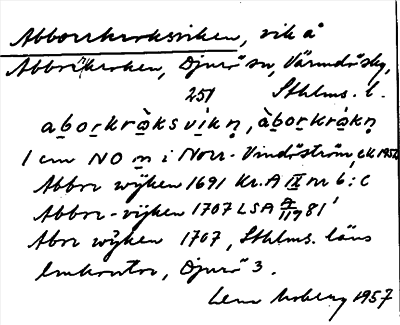 Abborrkroksviken, vik å
Abborrkroken, Djurö sn, Värmdö skg,
251 Sthlms. l.
abo̲rkrò̲ksvi̲kn̥, àbo̲rkrò̲kn̥
1 cm NO m i Norr-Vindöström, ek. 1952
Abbor wijken 1691 Kr.A IX nr 6:c
Abbor-vijken 1707 LSA A 119 81
Abor wijken 1707, Sthlms. läns
lmkontor, Djurö 3.
Lena Moberg 1957